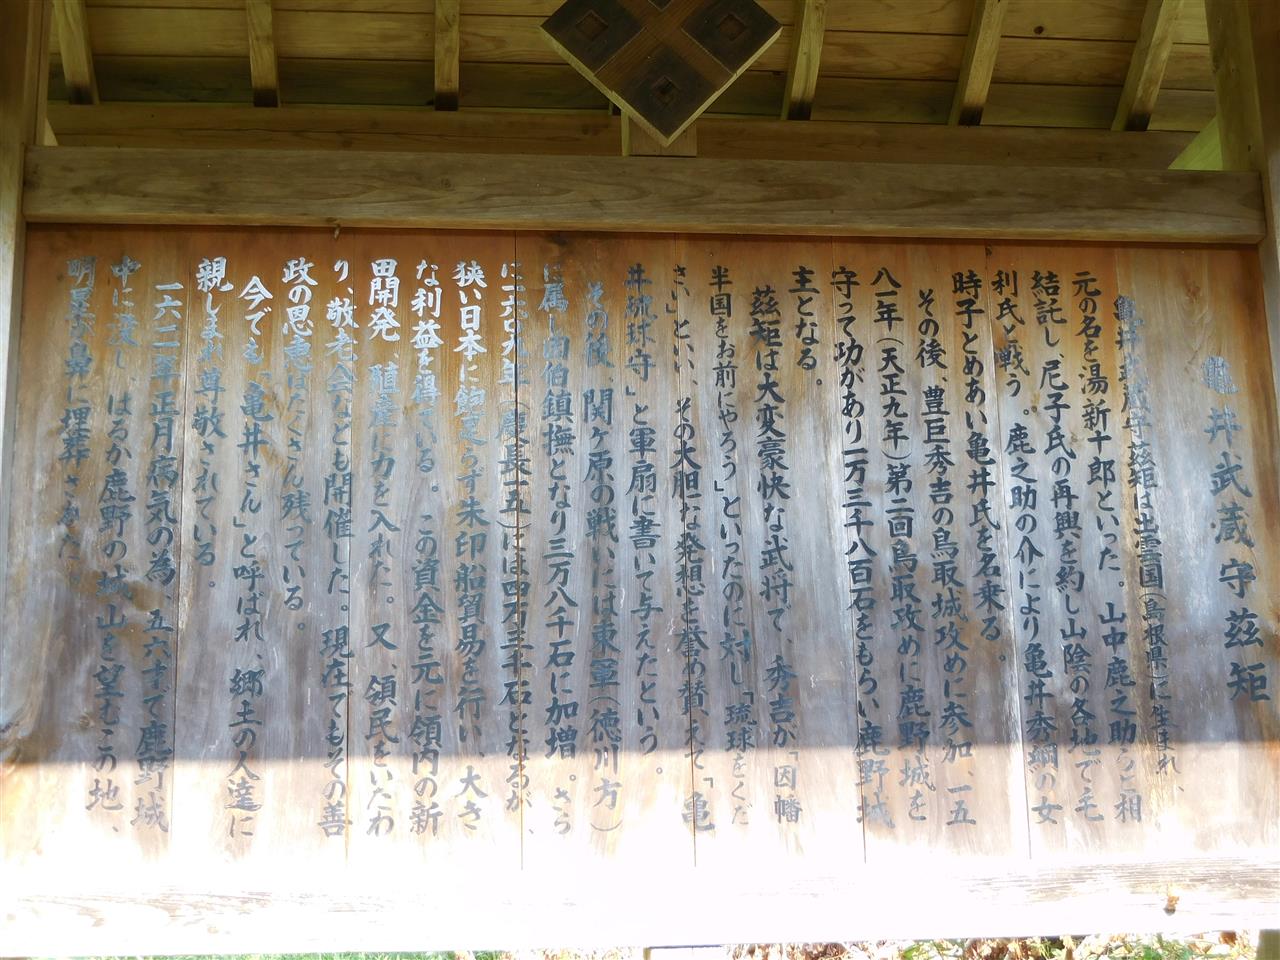 亀井武蔵守茲矩
亀井武蔵守茲矩は出雲国(島根県)に生まれ、
元の名を湯新十郎といった。山中鹿之助らと相
結託し、尼子氏の再興を約し山陰の各地で毛
利氏と戦う。鹿之助の介により亀井秀綱の女
時子とめあい亀井氏を名乗る。
その後、豊臣秀吉の鳥取城攻めに参加、一五
八一年(天正九年)第二回鳥取攻めに鹿野城を
守って功があり一万三千八百石をもらい鹿野城
主となる。
茲矩は大変豪快な武将で、秀吉が「因幡
半国をお前にやろう」といったのに対し「琉球をくだ
さい」といい、その大胆な発想を誉め替、えて「亀
井琉球守」と軍扇に書いて与えたという。
その後、関ヶ原の戦いには東軍(徳川方)
に属し因伯鎮撫となり三万八千石に加増。さら
に一六〇九年(慶長一五)には四万三千石となるが、
狭い日本に飽足らず朱印船貿易を行い、大き
な利益を得ている。この資金を元に領内の新
田開発、殖産に力を入れた。又、領民をいたわ
り、敬老会なども開催した。現在でもその善
政の恩恵はたくさん残っている。
今でも「亀井さん」と呼ばれ、郷土の人達に
親しまれ尊敬されている。
一六一二年正月病気の為、五六才で鹿野城
中に没し、はるか鹿野の城山を望むこの地、
明星ヶ鼻に埋葬された。